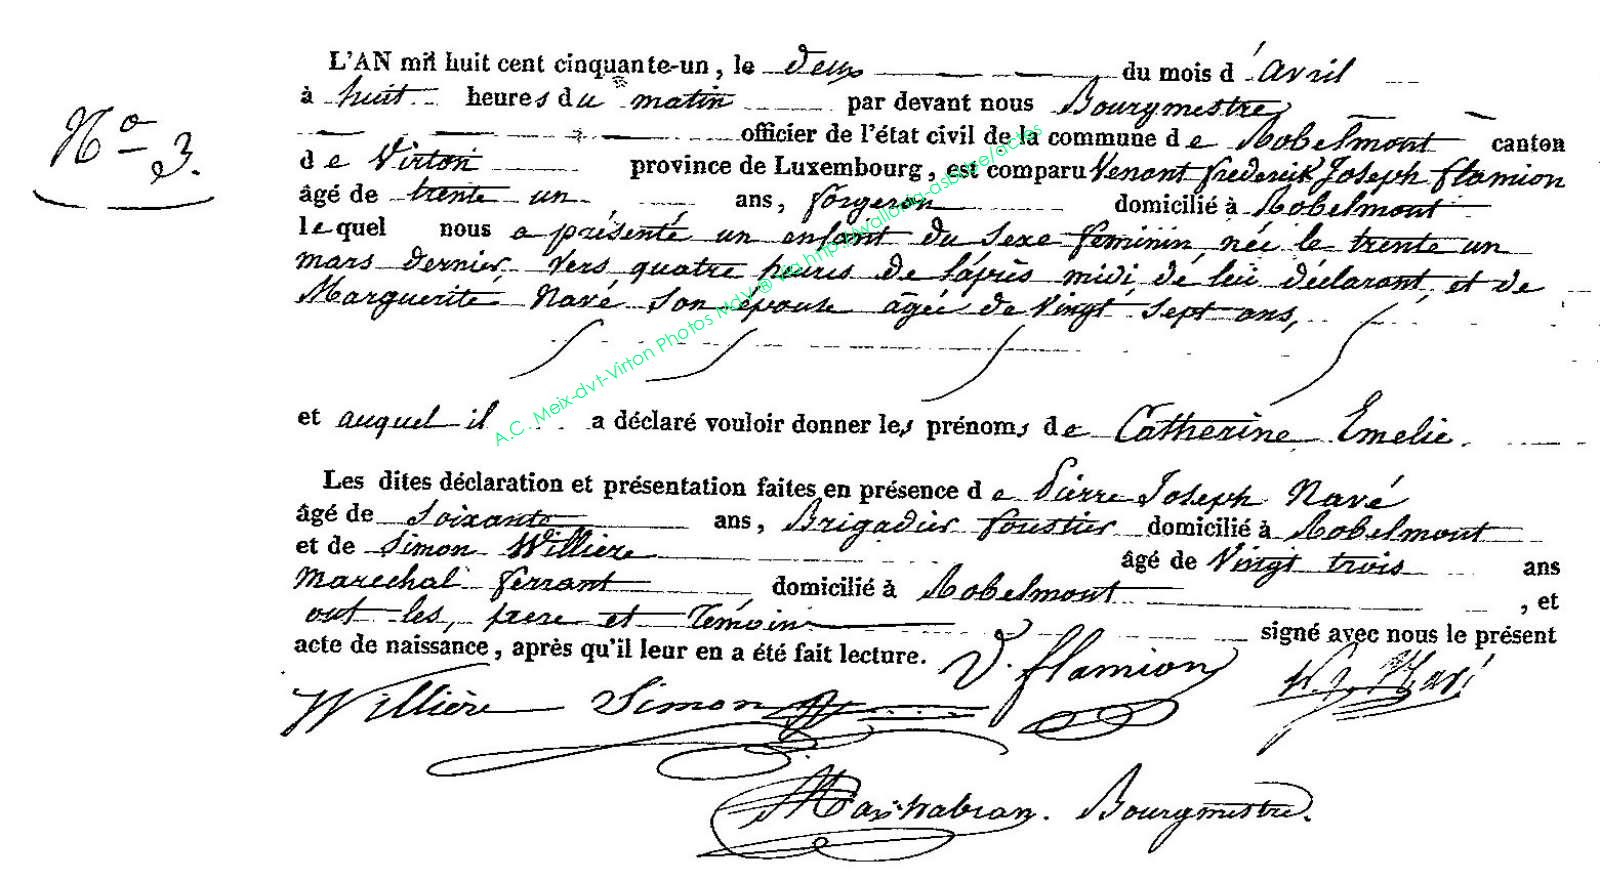 L'AN mil huit cent cinquante-un, le deux du mois d'avril
à huit heures du matin par devant nous Bourgmestre
No 3.
officier de l'état civil de la commune de Robelmont canton
de Virton province de Luxembourg, est comparu Venant frederick Joseph flamion
âgé de trente un ans, forgeron domicilié à Robelmont
lequel nous a présenté un enfant du sexe feminin née le trente un
mars dernier vers quatre heures de l'après midi, de lui déclarant et de
Marguerite Navé son épouse âgée de vingt sept ans,
et auquel il a déclaré vouloir donner les prénoms de Catherine Emelie.
Les dites déclaration et présentation faites en présence de Pierre Joseph Navé
âgé de Soixante ans, Brigadier forestier domicilié à Robelmont
et de Simon Willière âgé de vingt trois ans
Marechal ferrant domicilié à Robelmont, et
ont les, pere et Témoin signé avec nous le présent
acte de naissance, après qu'il leur en a été fait lecture. V. flamion
Willière Simon Navé
Bourgmestre.
A.C. Meix-dvt-Virton Photos MdV @ via http://wallonia-asbl.be/actes